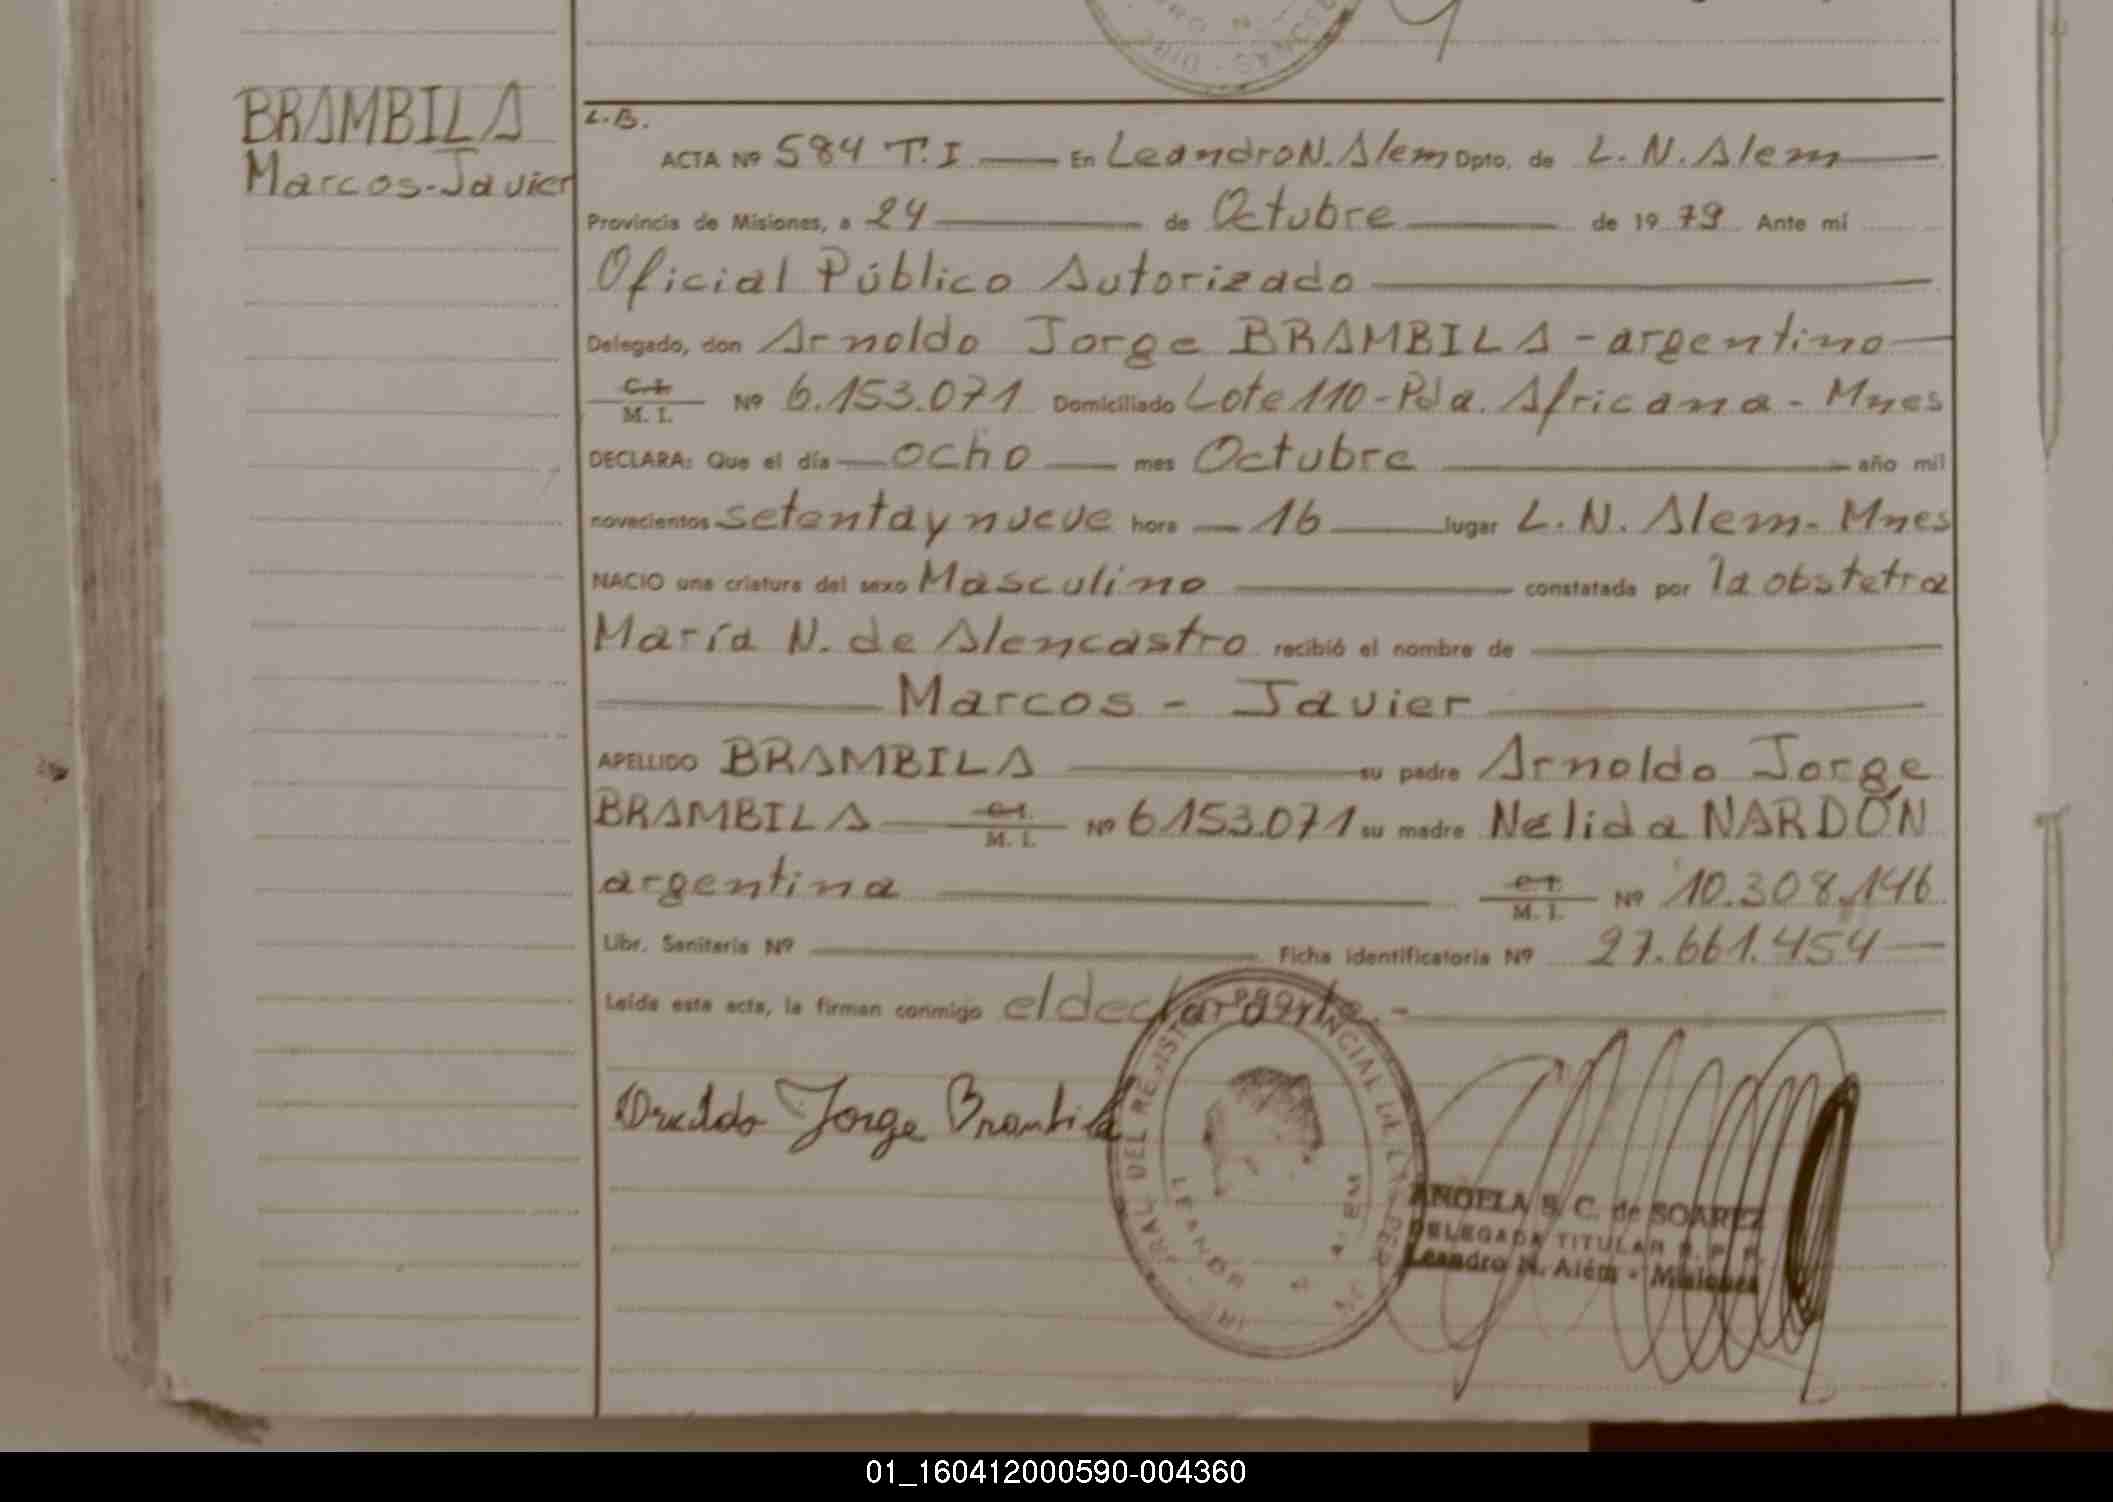 BRAMBILA
Marcos-Javier
L.B.
ACTA Nº 584 T.I En Leandro N. Alem Dpto. de L. N. Alem
Provincia de Misiones, a 24 de Octubre de 1979 Ante mí
Oficial Público Autorizado
Delegado, don Arnoldo Jorge BRAMBILA - argentino
C.I.
M. I. Nº 6.153.071 Domiciliado Lote 110 - Pda. Africana - Mnes
DECLARA: Que el día ocho mes Octubre año mil
novecientos setenta y nueve hora 16 lugar L. N. Alem - Mnes
NACIO una criatura del sexo Masculino constatada por la obstetra
María N. de Alencastro recibió el nombre de
Marcos - Javier
APELLIDO BRAMBILA su padre Arnoldo Jorge
BRAMBILA C.I. M. I. Nº 6.153.071 su madre Nelida NARDÓN
argentina C.I. M. I. Nº 10.308.146
Libr. Sanitaria Nº Ficha identificatoria Nº 27.661.454
Leída esta acta, la firman conmigo el declarante.-
Arnoldo Jorge Brambila
ANGELA S. C. de SOAREZ
DELEGADA TITULAR R. P. P.
Leandro N. Além - Misiones
01_160412000590-004360